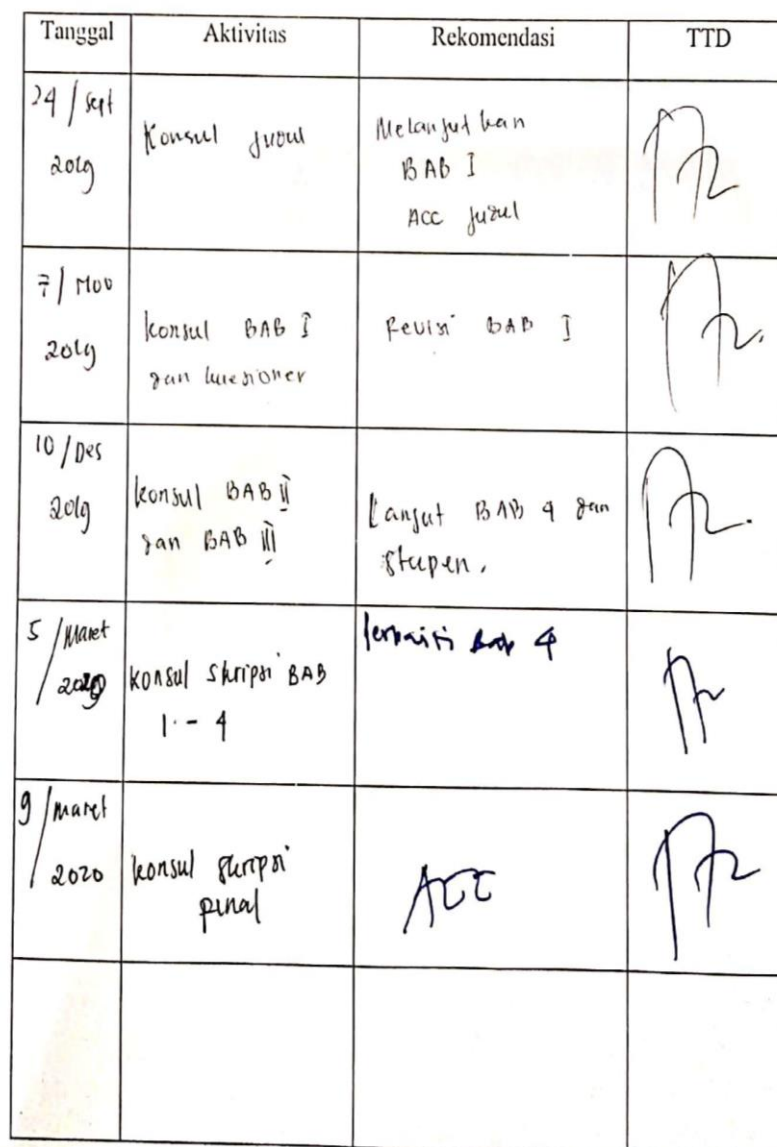 Tanggal Aktivitas Rekomendasi TTD
24 / Sept
2019
Konsul Judul
Melanjutkan
BAB I
ACC Judul
7 / Nov
2019
Konsul BAB I
dan kuesioner
Revisi BAB I
10 / Des
2019
Konsul BAB II
dan BAB III
Lanjut BAB 4 dan
5 / Maret
2020
Konsul Skripsi BAB
1 - 4
Perbaiki Bab 4
9 / Maret
2020
Konsul Skripsi
pinal
ACC